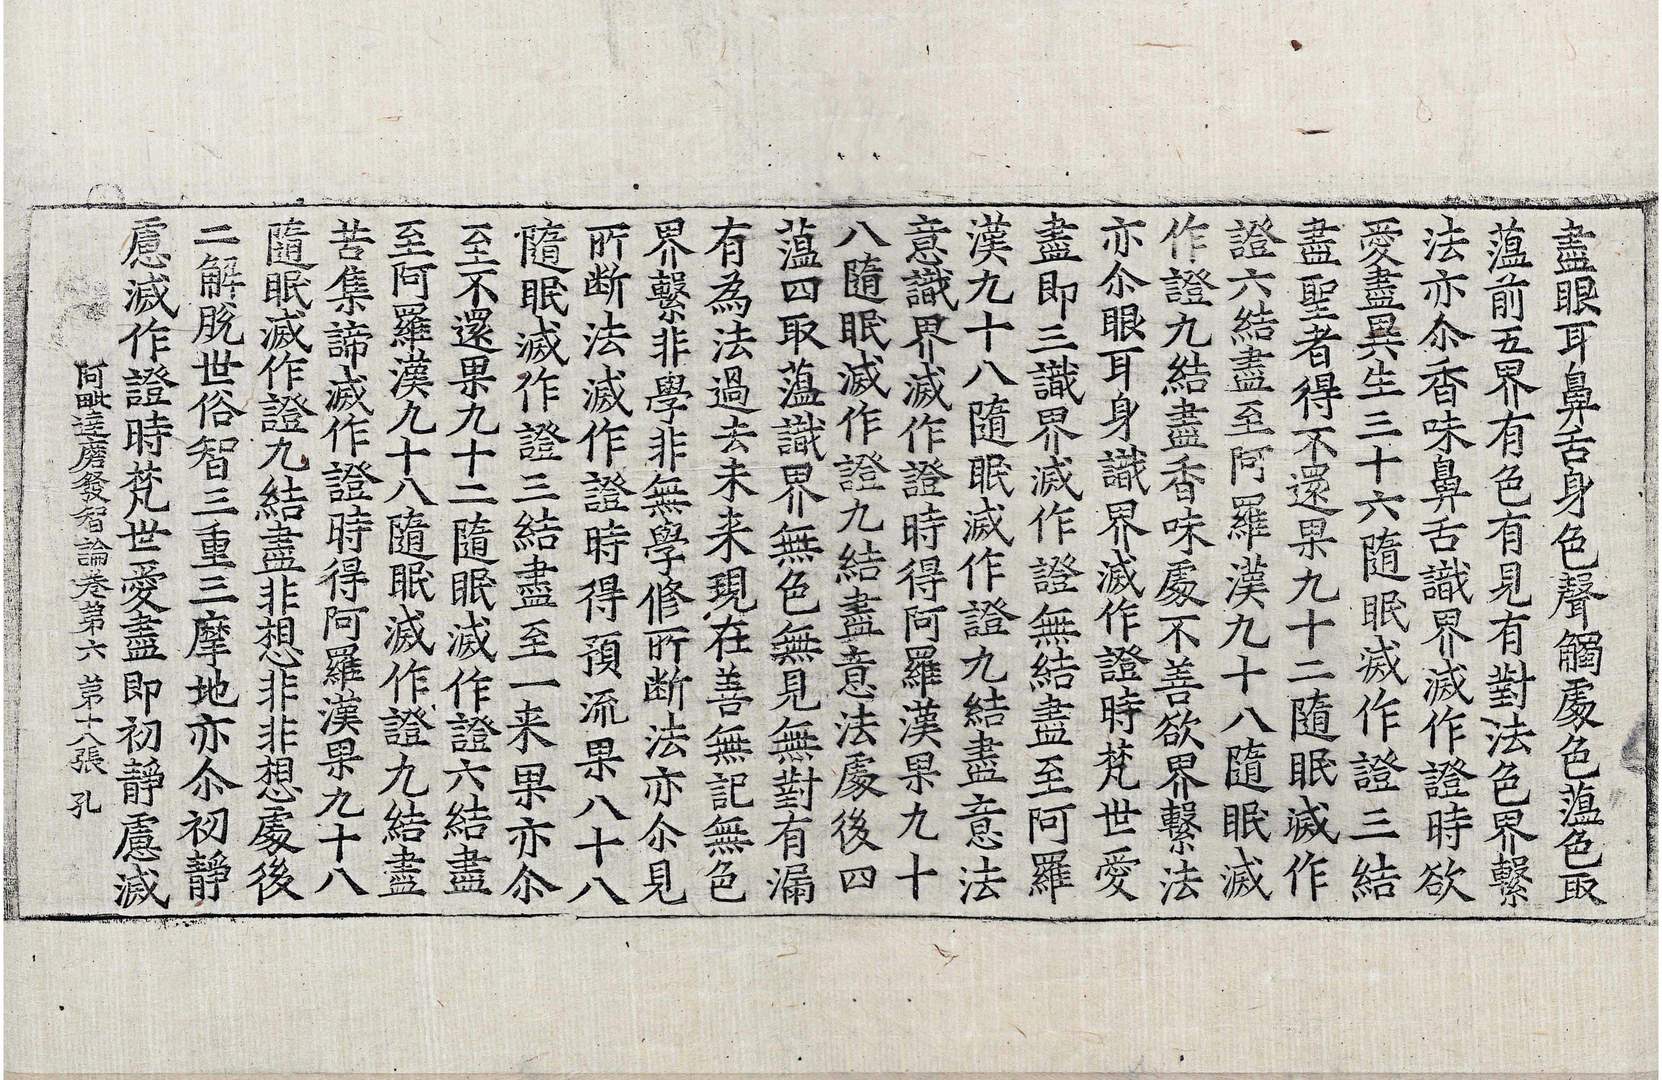 盡眼耳鼻舌身色聲觸處色薀色取
薀前五界有色有見有對法色界繫
法亦尒香味鼻舌識界滅作證時欲
愛盡異生三十六隨眠滅作證三結
盡聖者得不還果九十二隨眠滅作
證六結盡至阿羅漢九十八隨眠滅
作證九結盡香味處不善欲界繫法
亦尒眼耳身識界滅作證時梵世愛
盡即三識界滅作證無結盡至阿羅
漢九十八隨眠滅作證九結盡意法
意識界滅作證時得阿羅漢果九十
八隨眠滅作證九結盡意法處後四
薀四取薀識界無色無見無對有漏
有為法過去未来現在善無記無色
界繫非學非無學修所断法亦尒見
所断法滅作證時得預流果八十八
隨眠滅作證三結盡至一来果亦尒
至不還果九十二隨眠滅作證六結盡
至阿羅漢九十八隨眠滅作證九結盡
苦集諦滅作證時得阿羅漢果九十八
隨眠滅作證九結盡非想非非想處後
二解脫世俗智三重三摩地亦尒初靜
慮滅作證時梵世愛盡即初靜慮滅
阿毗達磨發智論卷第六 第十八張 孔